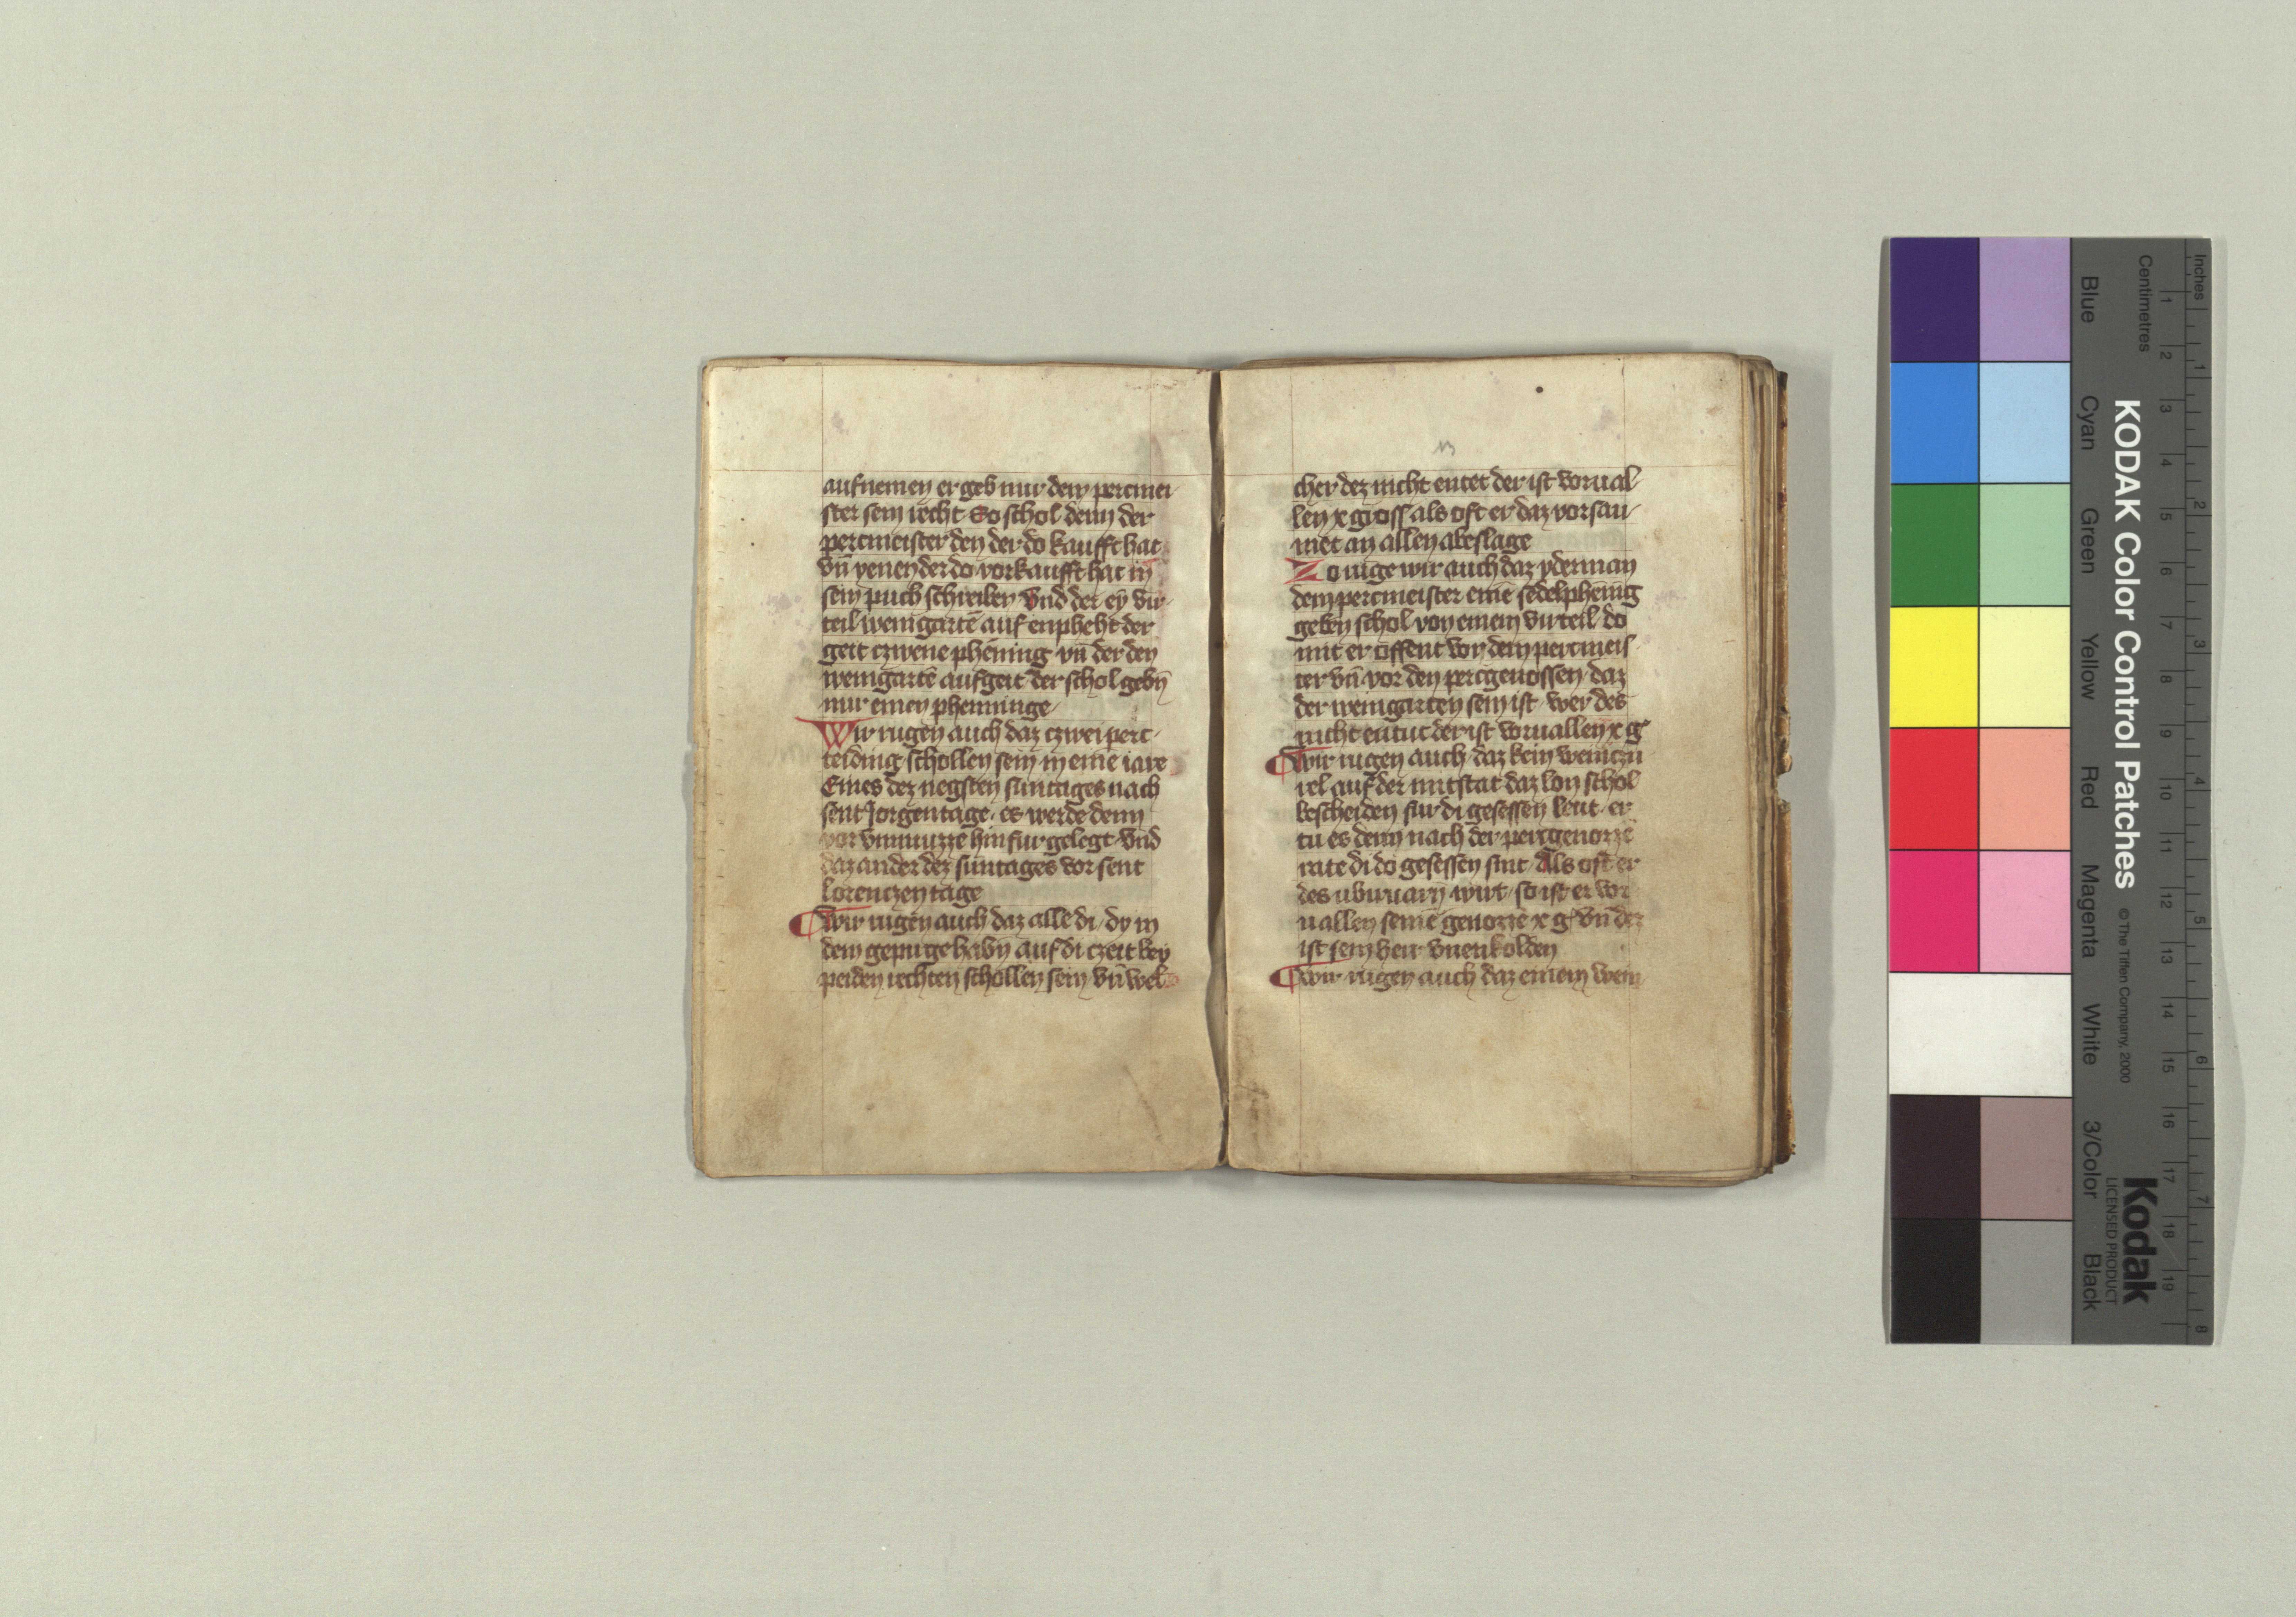 aufnemen er geb nur dem percmei
ster sein recht So schol denn der
percmeister den der do kaufft hat
vn̄ yenen der do vorkaufft hat in
sein puch schreiben Vnd der ey̅ vir-
teil weingartē auf enpheht der
geit czwene phēning vn̄ der den
weingartē aufgeit der schol gebn̄
nur einen phenninge
Wir rugen auch daz czwei perc-
teiding schollen sein in eine iare
Eines dez negsten suntages nach
sent Jorgentage es werde denn
vor vnmuzze hin fur gelegt vnd
daz ander dez suntages vor sent
lorenczen tage
wir rugen auch daz alle di dy in
dem gepirge habn̄ auf di czeit bey
peiden rechten schollen sein vn̄ wel
13
cher dez nicht entet der ist vorual-
len x gross als oft er daz vorsau-
met an allen abeslage
Zo ruge wir auch daz yderman
dem percmeister eine sedelphēnig
geben schol von einem virteil do
mit er offent vor dem percmeis-
ter vn̄ vor den percgenossen daz
der weingarten sein ist wer des
nicht entut der ist voruallen x gͬ
wir rugen auch daz kein weinczu
rel auf der mitstat daz lon schol
bescheiden fur di gesessen leut er
tu es denn nach der percgenozzē
rate di do gesessen sint Als oft er
des ubiruarn̄ wirt so ist er vor
uallen seine genozze x gͬ vn̄ der
ist sein herr vnenkolden
wir rugen auch daz einem wein
Inches
Centimetres
1 2 3 4 5 6 7 8 9 10 11 12 13 14 15 16 17 18 19
1 2 3 4 5 6 7 8
KODAK Color Control Patches © The Tiffen Company, 2000
Kodak
LICENSED PRODUCT
Blue Cyan Green Yellow Red Magenta White 3/Color Black